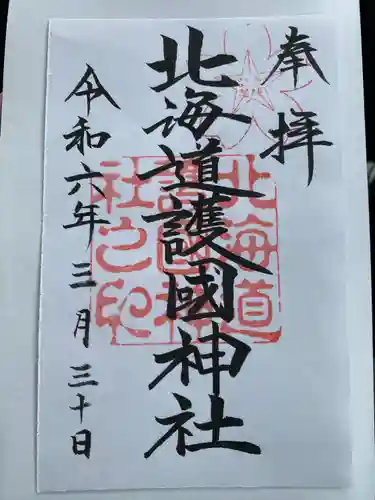 奉拝
北海道護國神社
令和六年三月三十日
北海道
護國神
社之印